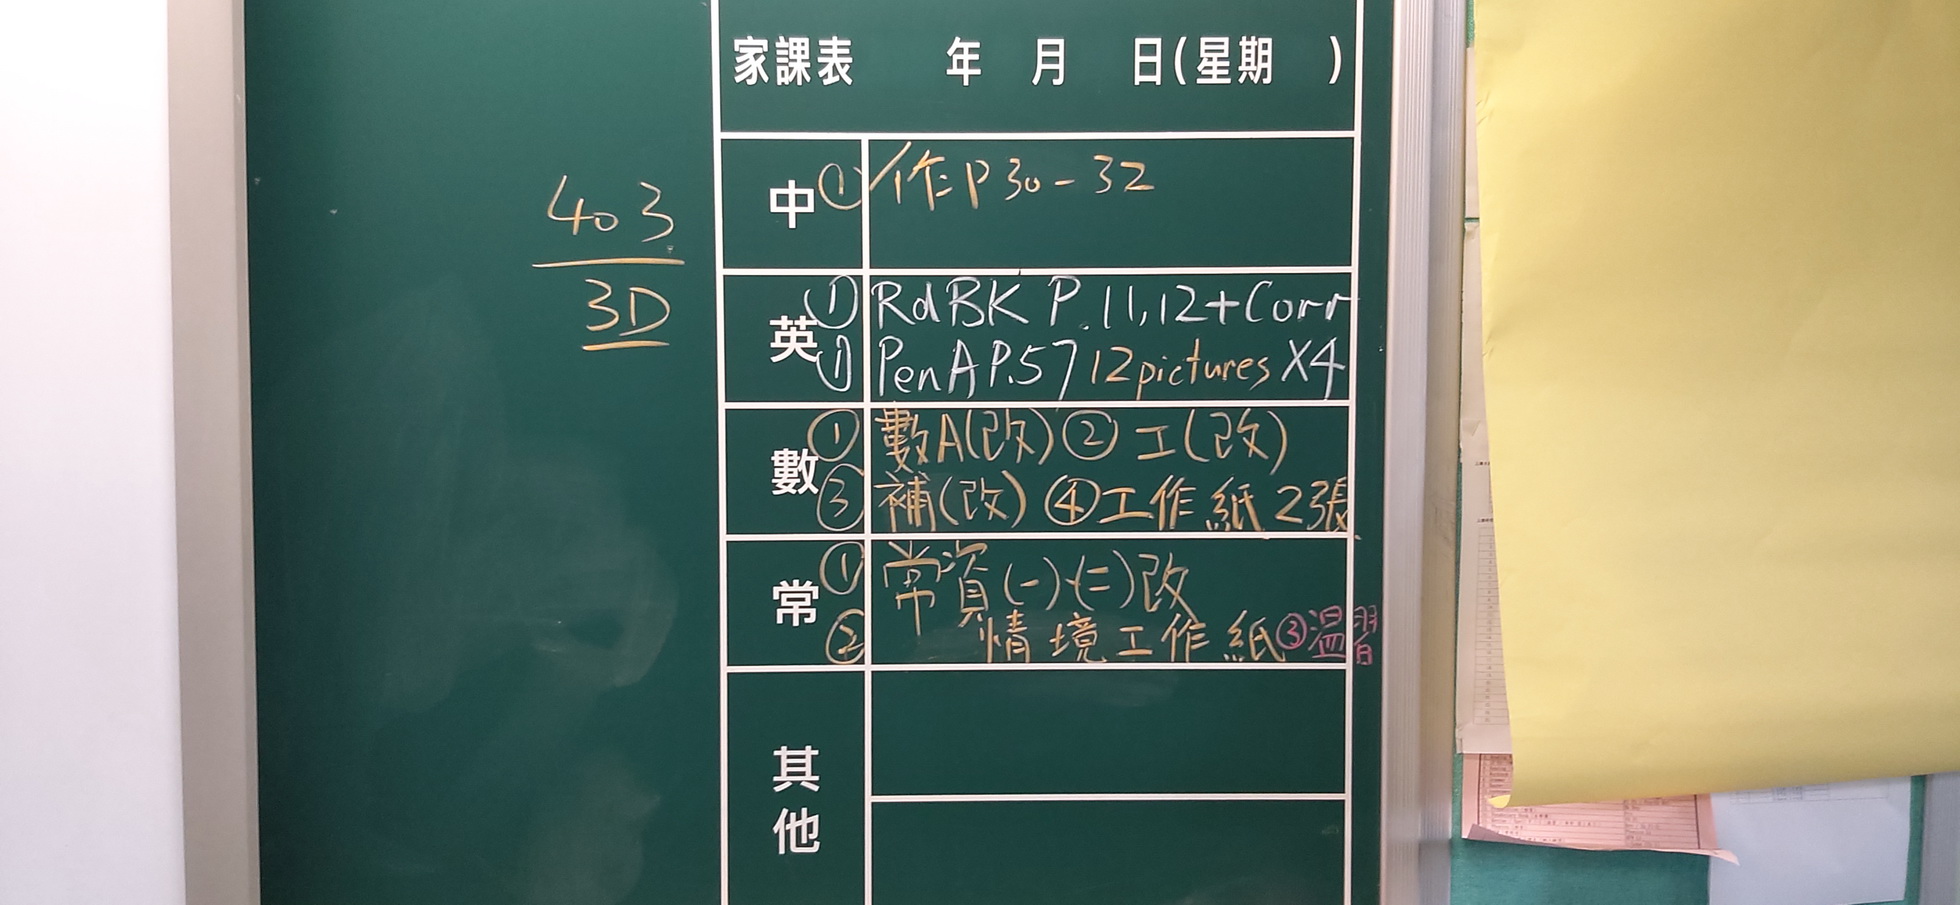 家課表 年 月 日(星期 )
403
3D
中 ① 作P30-32
英 ① RdBK P.11,12+Corr
① PenA P.57 12pictures X4
數 ① 數A(改) ② 工(改)
③ 補(改) ④ 工作紙2張
常 ① 常資(一)(二)改
② 情境工作紙 ③ 溫習
其他